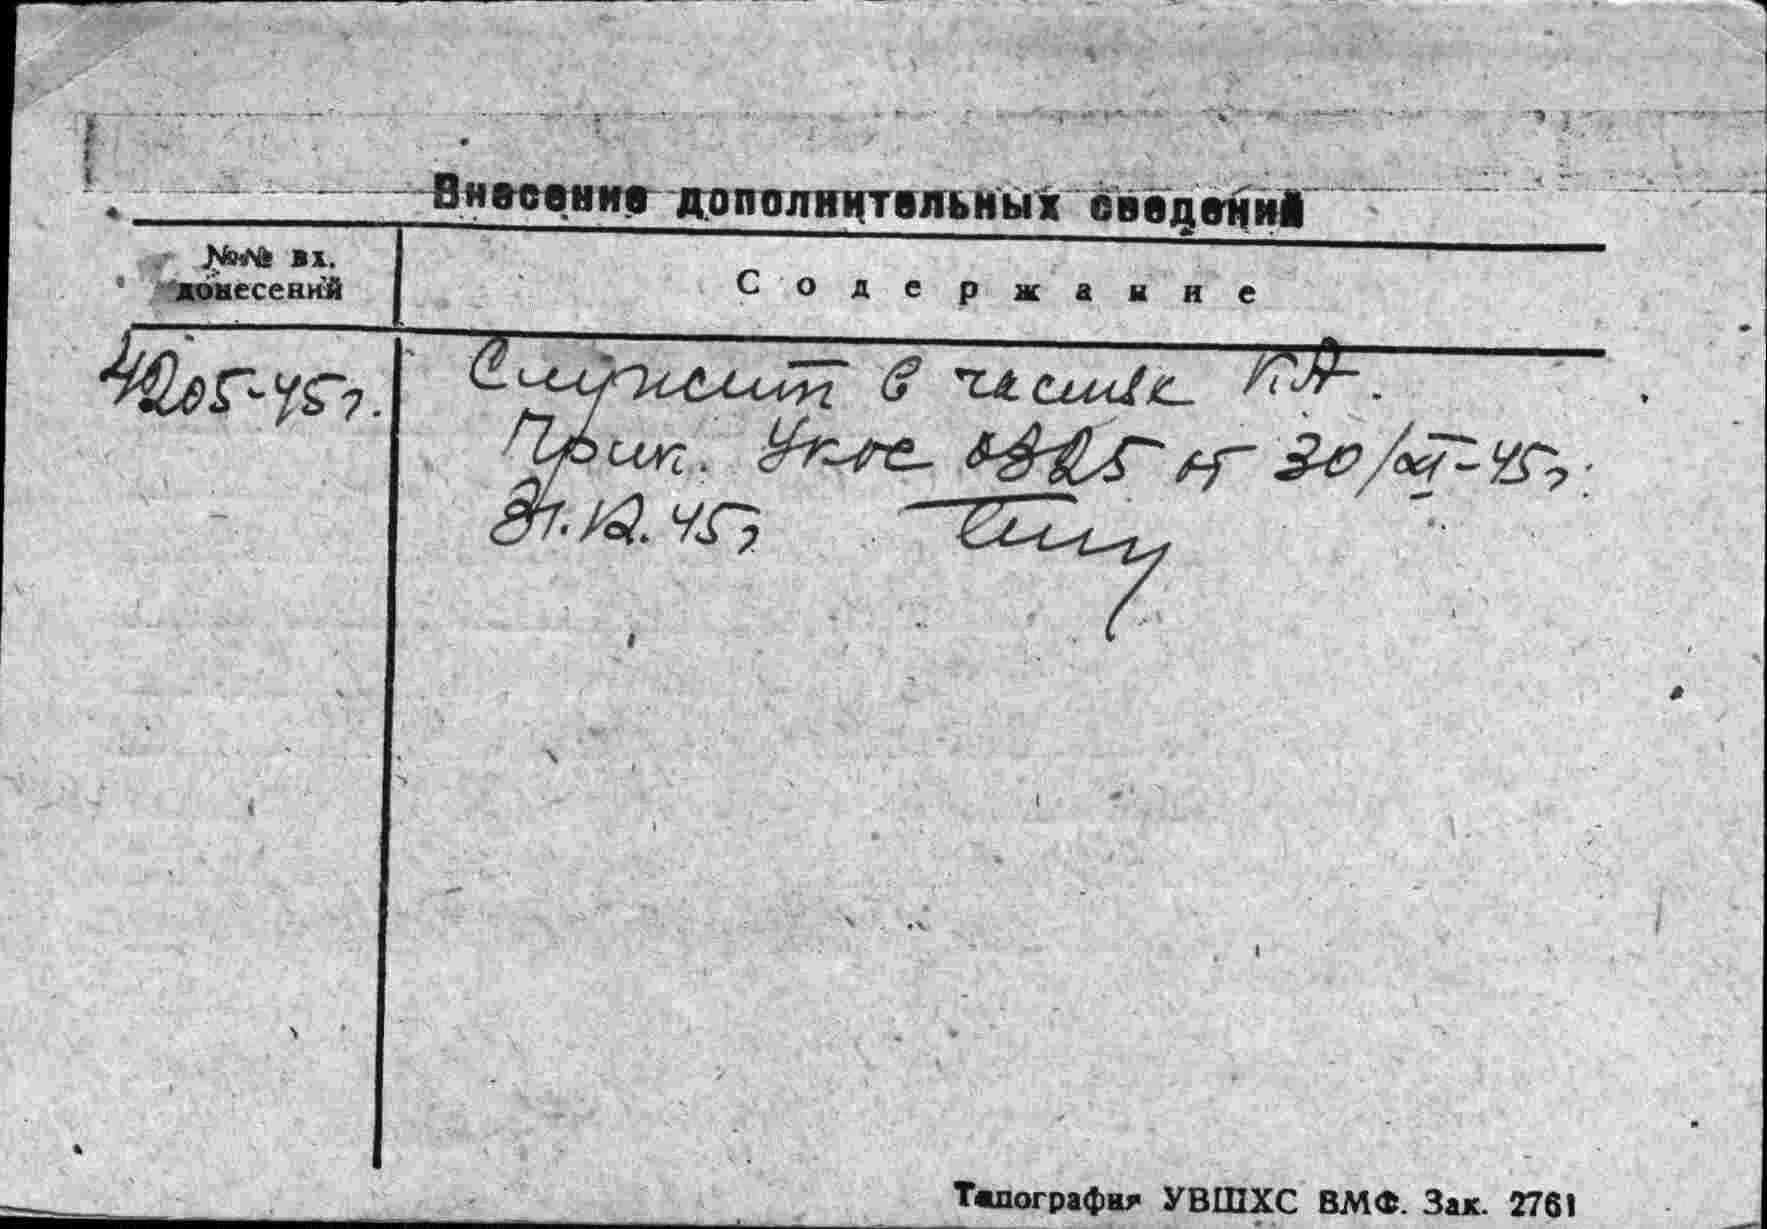 Внесение дополнительных сведений
№№ вх.
донесений
Содержание
4205-45г.
Служит в частях КА.
Прик. Укос 0325 от 30/XI-45г.
31.12.45г
Типография УВШХС ВМФ. Зак. 2761